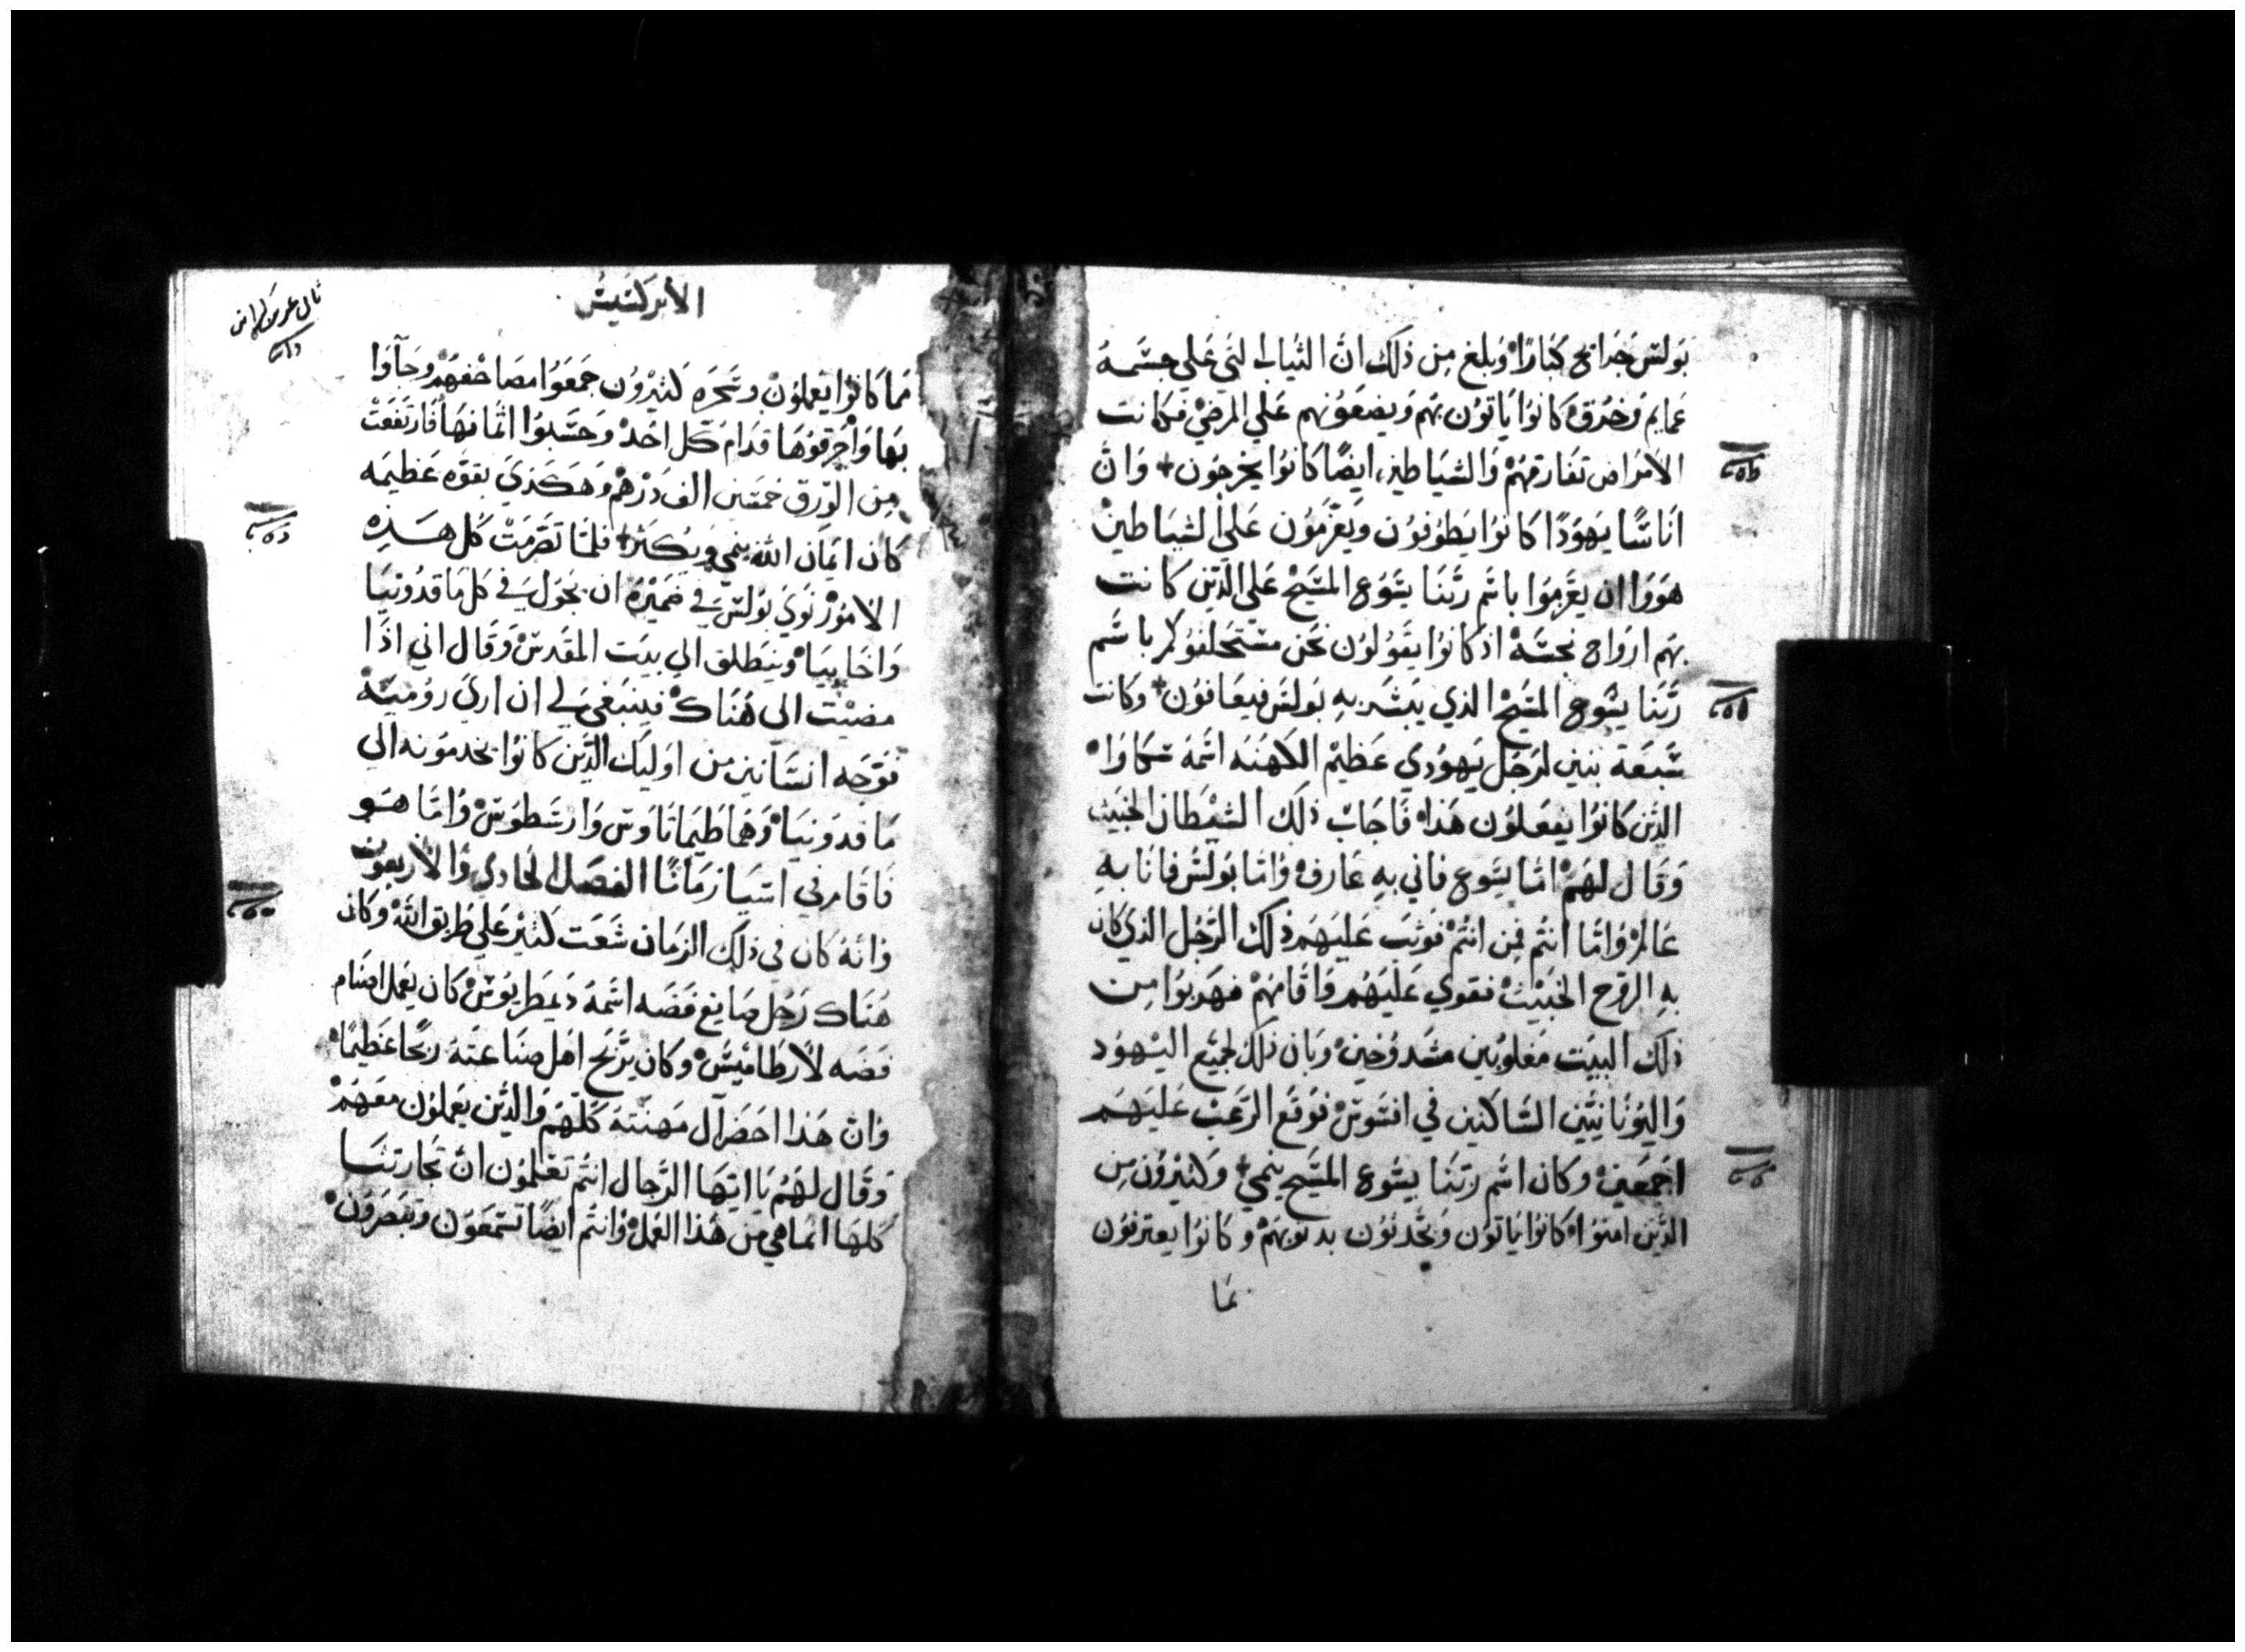 بولس جرايح كبارا وبلغ من ذلك ان الثياب التي علي جسمه
عمايم وخرق كانوا ياتون بهم ويضعونهم علي المرضي فكانت
الامراض تفارقهم والشياطين ايضًا كانوا يخرجون + وان
اناسًا يهودًا كانوا يطوفون ويعزمون علي الشياطين
هووا ان يعزموا باسم ربنا يسوع المسيح علي الذين كانت
بهم ارواح نجسه اذ كانوا يقولون نحن نستحلفوكم باسم
ربنا يسوع المسيح الذي يبشر به بولس فيعافون + وكانت
سبعة بنين لرجل يهودي عظيم الكهنه اسمه سكاوا
الذين كانوا يفعلون هذا فاجاب ذلك الشيطان الخبيث
وقال لهم اما يسوع فاني به عارف واما بولس فانا به
عالم واما انتم فمن انتم فوثب عليهم ذلك الرجل الذي كان
به الروح الخبيث فقوي عليهم واقامهم فهربوا من
ذلك البيت مغلوبين مشدوخين وبان ذلك لجميع اليهود
واليونانيين الساكنين في افسوس فوقع الرعب عليهم
اجمعين وكان اسم ربنا يسوع المسيح ينمي + وكثيرون من
الذين امنوا كانوا ياتون ويحدثون بدنوبهم وكانوا يعترفون
مما
الأبركسيس
مما كانوا يعملون وسحره كثيرون جمعوا مصاحفهم وجآوا
بها واحرقوها قدام كل احد وحسبوا اثمانها فارتفعت
من الورق خمسين الف درهم وهكذي بقوه عظيمه
كان ايمان الله ينمي ويكثر + فلما تصرمت كل هذه
الامور نوي بولس في ضميره ان يجول في كل ماقدونيا
واخاييا وينطلق الي بيت المقدس وقال اني اذا
مضيت الى هناك فينبغي لي ان اري روميه
فوجه انسانين من اوليك الذين كانوا يخدمونه الي
ماقدونيا وهما طيماتاوس وارسطوس واما هو
فاقام في اسيا زمانًا الفصل الحادي والاربعون
وانه كان في ذلك الزمان شعت كثير علي طريق الله وكان
هناك رجل صايغ فضه اسمه ديمطريوس كان يعمل اصنام
فضه لأرطاميس وكان يربح اهل صناعته ربحًا عظيمًا
وان هذا احضر آل مهنته كلهم والذين يعملون معهم
وقال لهم يا ايها الرجال انتم تعلمون ان تجارتنا
كلها انما هي من هذا العمل وانتم ايضًا تسمعون وتبصرون